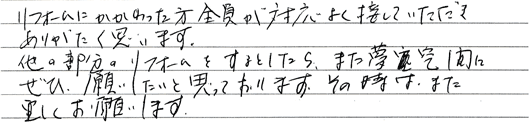 リフォームにかかわった方全員が対応よく接していただき
ありがたく思います。
他の部分のリフォームをするとしたら、また夢 間に
ぜひ、願いしたいと思っております。その時は、また
宜しくお願いします。